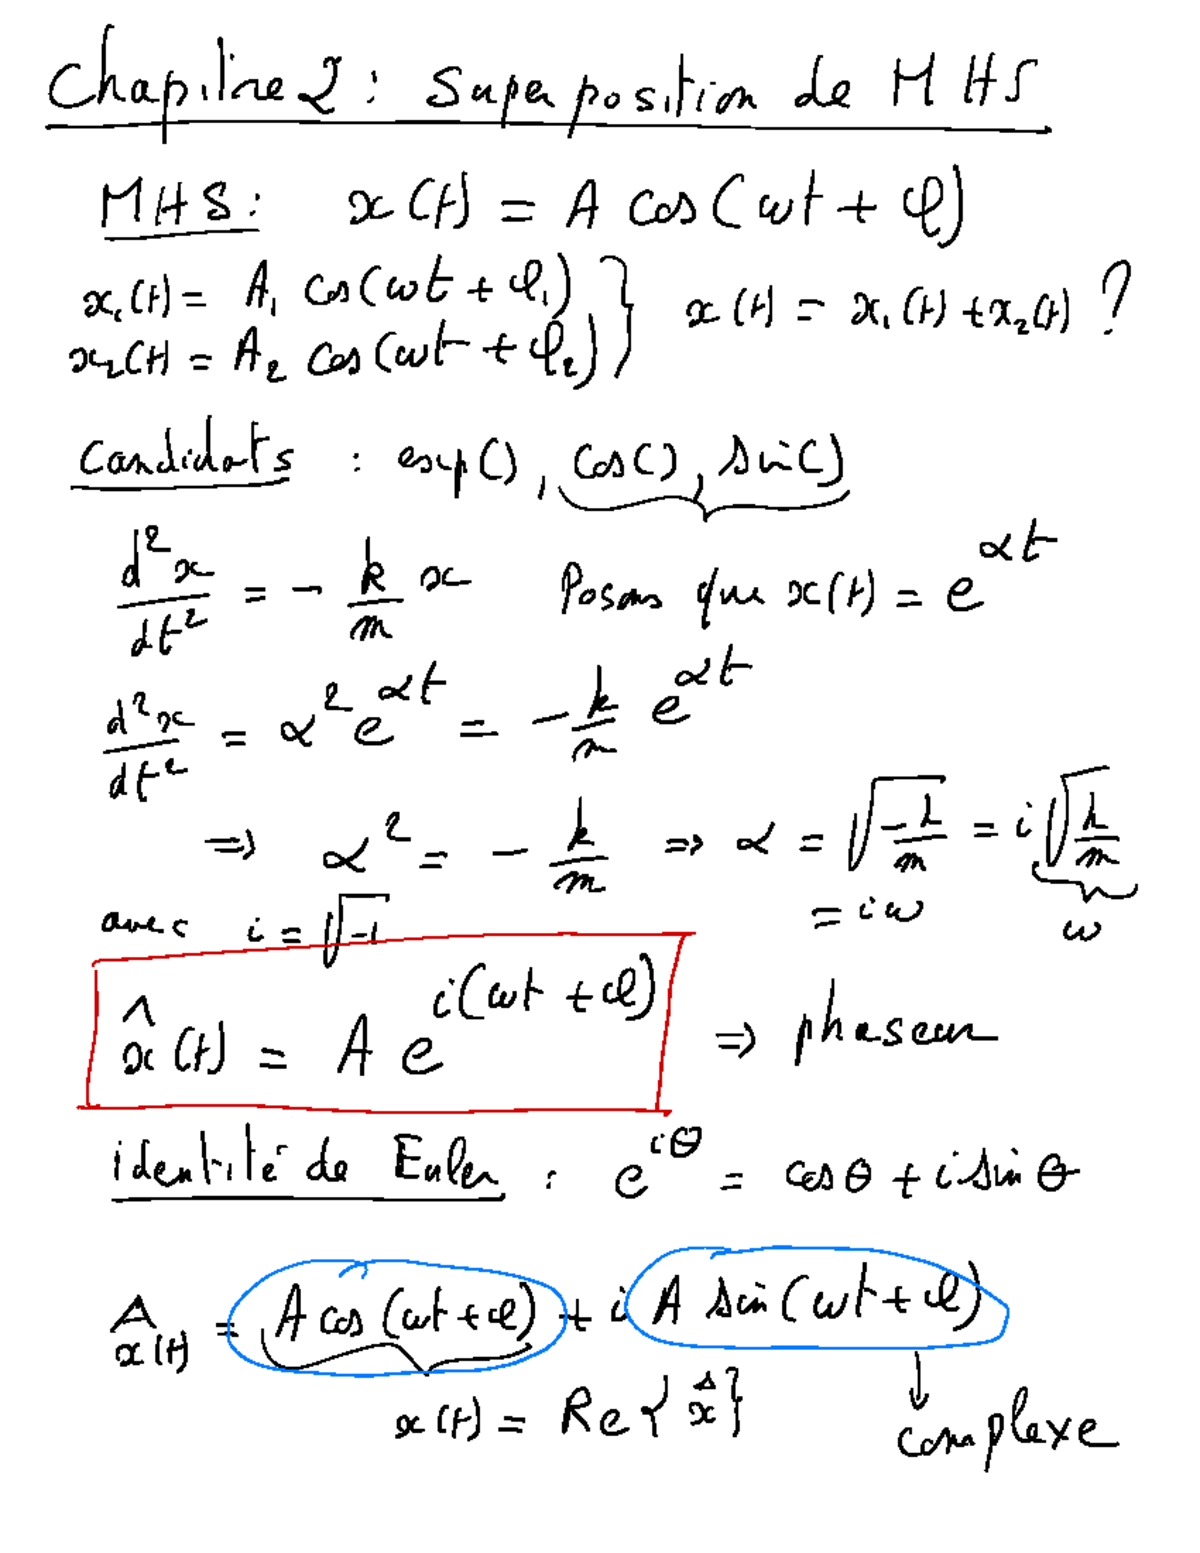 Chapitre 2 : Superposition de MHS
MHS : x(t) = A cos(ωt + φ)
x₁(t) = A₁ cos(ωt + φ₁) } x(t) = x₁(t) + x₂(t) ?
x₂(t) = A₂ cos(ωt + φ₂) }
Candidats : exp(), cos(), sin()
d²x/dt² = - k/m x Posons que x(t) = e^{αt}
d²x/dt² = α² e^{αt} = - k/m e^{αt}
=> α² = - k/m => α = √(-k/m) = i √(k/m)
= iω ω
avec i = √-1
x̂(t) = A e^{i(ωt + φ)} => phaseur
identité de Euler : e^{iθ} = cos θ + i sin θ
x̂(t) = A cos(ωt + φ) + i A sin(ωt + φ)
x(t) = Re{x̂} ↓ complexe